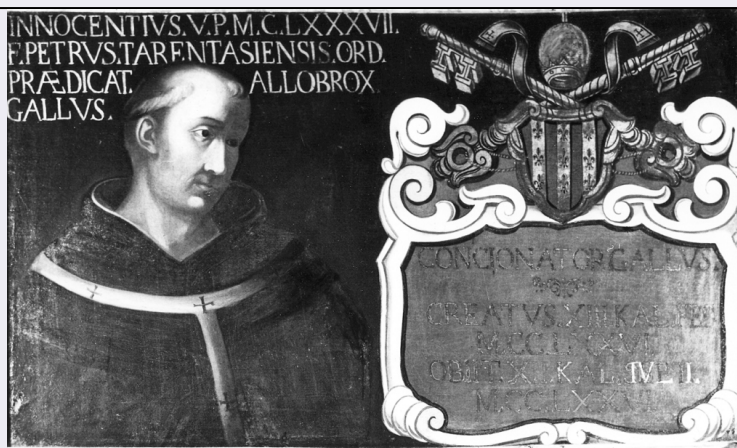 INNOCENTIVS.V.P.M.C.LXXXVII.
F.PETRVS.TARENTASIENSIS.ORD.
PRÆDICAT. ALLOBROX
GALLVS.
CONCIONATOR GALLVS.
CREATVS.XIII.KAL.FEB
OBIIT.X. KAL. IVL I.